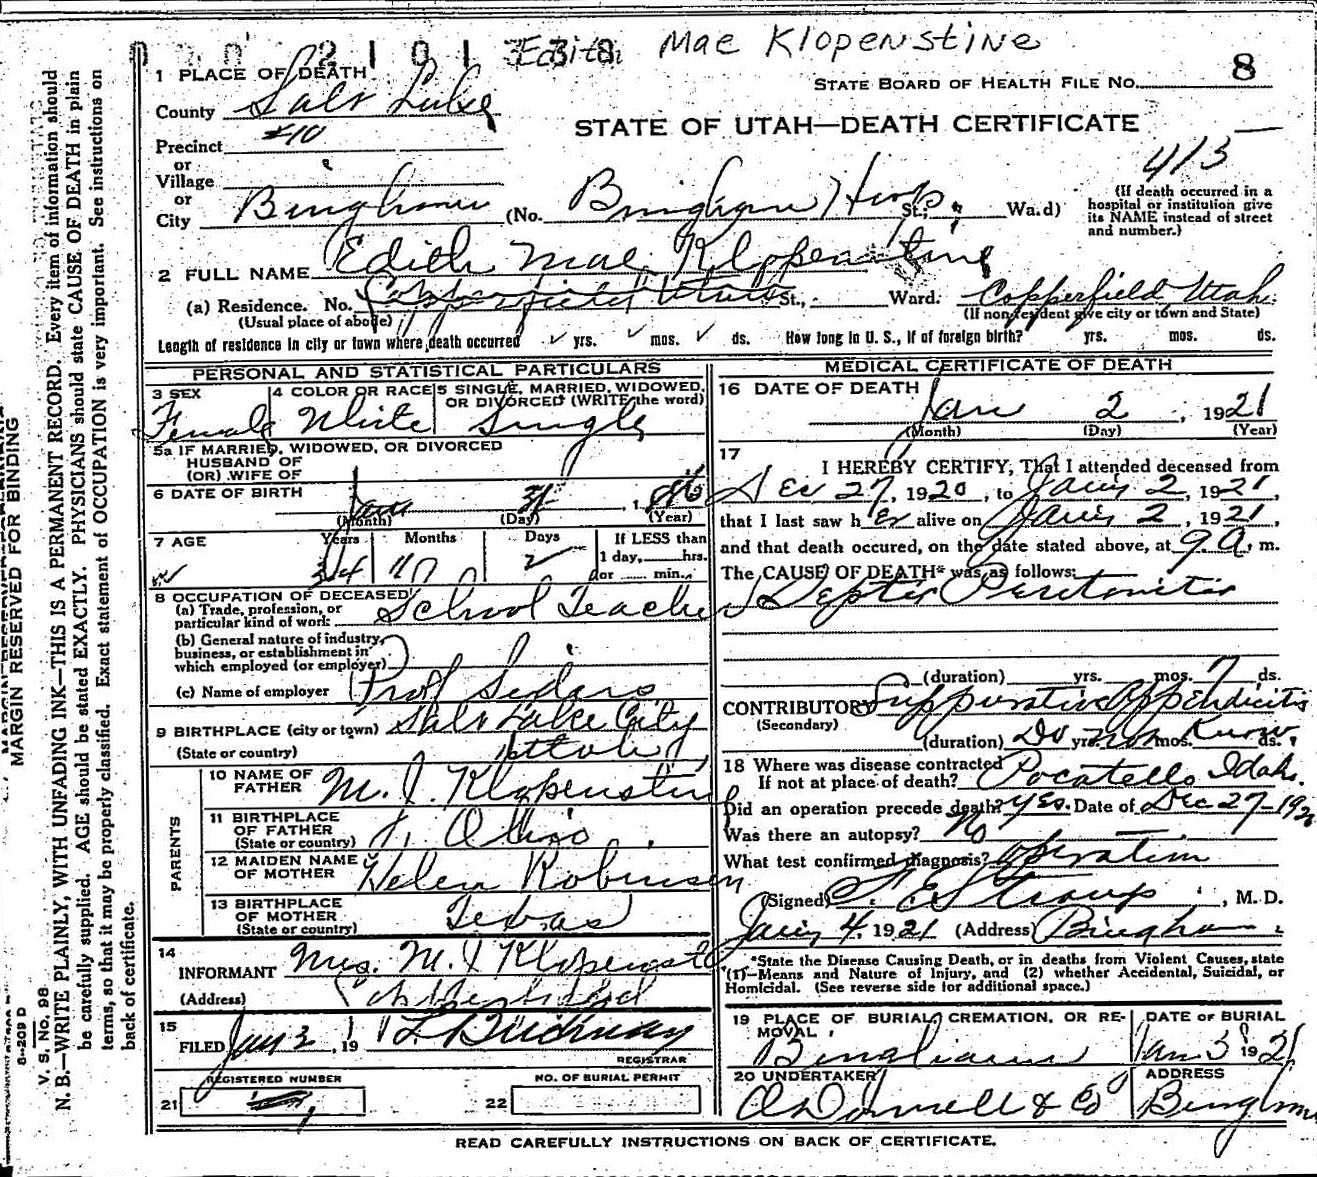 2101338
Edith Mae Klopenstine
STATE BOARD OF HEALTH FILE No. 8
1 PLACE OF DEATH
County Salt Lake
STATE OF UTAH—DEATH CERTIFICATE
Precinct #10
or
Village
or
City Bingham (No. Bingham Hosp. St.; Wa.d)
413
(If death occurred in a
hospital or institution give
its NAME instead of street
and number.)
2 FULL NAME Edith Mae Klopenstine
(a) Residence. No. Copperfield Utah St., Ward. Copperfield, Utah.
(Usual place of abode) (If non-resident give city or town and State)
Length of residence in city or town where death occurred yrs. mos. ds. How long in U. S., if of foreign birth? yrs. mos. ds.
PERSONAL AND STATISTICAL PARTICULARS
3 SEX 4 COLOR OR RACE 5 SINGLE, MARRIED, WIDOWED,
OR DIVORCED (WRITE the word)
Female White Single
5a IF MARRIED, WIDOWED, OR DIVORCED
HUSBAND OF
(OR) WIFE OF
6 DATE OF BIRTH Jan 31, 1886
(Month) (Day) (Year)
7 AGE Years Months Days If LESS than
1 day,......hrs.
or ...... min.
34 11 2
8 OCCUPATION OF DECEASED
(a) Trade, profession, or
particular kind of work School Teacher
(b) General nature of industry,
business, or establishment in
which employed (or employer)
(c) Name of employer Prof
9 BIRTHPLACE (city or town) Salt Lake City
(State or country) Utah
PARENTS
10 NAME OF
FATHER M. J. Klopenstine
11 BIRTHPLACE
OF FATHER
(State or country) Ohio.
12 MAIDEN NAME
OF MOTHER Helen Robinson
13 BIRTHPLACE
OF MOTHER
(State or country) Texas
14
INFORMANT Mrs. M. J. Klopenst
(Address) Copperfield
15
FILED Jan 3, 19
REGISTRAR
REGISTERED NUMBER
21
NO. OF BURIAL PERMIT
22
MEDICAL CERTIFICATE OF DEATH
16 DATE OF DEATH
Jan 2, 1921
(Month) (Day) (Year)
17
I HEREBY CERTIFY, That I attended deceased from
Dec 27, 1920, to Jany 2, 1921,
that I last saw her alive on Jany 2, 1921,
and that death occured, on the date stated above, at 9 a. m.
The CAUSE OF DEATH* was as follows:
Septic Peritonitis
(duration) yrs. mos. 7 ds.
CONTRIBUTORY Suppurative Appendicitis
(Secondary)
(duration) Do yrs. not mos. Know ds.
18 Where was disease contracted
If not at place of death? Pocatello Idaho.
Did an operation precede death? Yes. Date of Dec 27-1920
Was there an autopsy? No
What test confirmed diagnosis? Operation
(Signed) F. E. Straup, M. D.
Jany 4, 1921 (Address) Bingham
*State the Disease Causing Death, or in deaths from Violent Causes, state
(1) Means and Nature of Injury, and (2) whether Accidental, Suicidal, or
Homicidal. (See reverse side for additional space.)
19 PLACE OF BURIAL, CREMATION, OR RE-
MOVAL
DATE OF BURIAL
Bingham Jan 3 1921
20 UNDERTAKER ADDRESS
O'Donnell & Co Bingham
READ CAREFULLY INSTRUCTIONS ON BACK OF CERTIFICATE.
MARGIN RESERVED FOR BINDING
V. S. NO. 98
8-209 D
N. B.—WRITE PLAINLY, WITH UNFADING INK—THIS IS A PERMANENT RECORD. Every item of information should
be carefully supplied. AGE should be stated EXACTLY. PHYSICIANS should state CAUSE OF DEATH in plain
terms, so that it may be properly classified. Exact statement of OCCUPATION is very important. See instructions on
back of certificate.